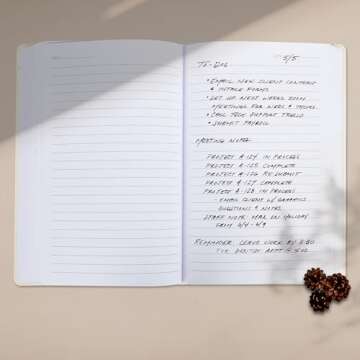 TO-DOS 5/5
• EMAIL NEW CLIENT CONTRACT
& INTAKE FORMS
• SET UP NEXT WEEKS ZOOM
MEETINGS FOR WEDS & THURS.
• CALL TECH SUPPORT
• SUBMIT PAYROLL
MEETING NOTES
PROJECT A-124 IN PROCESS
PROJECT A-125 COMPLETE
PROJECT A-126 RE-SUBMIT
PROJECT A-127 COMPLETE
PROJECT A-128 IN PROCESS
- EMAIL CLIENT W/ GRAPHICS
QUESTIONS & NOTES
STAFF NOTE: ON HOLIDAY
FROM
REMINDER: LEAVE WORK BY
FOR DENTIST APPT